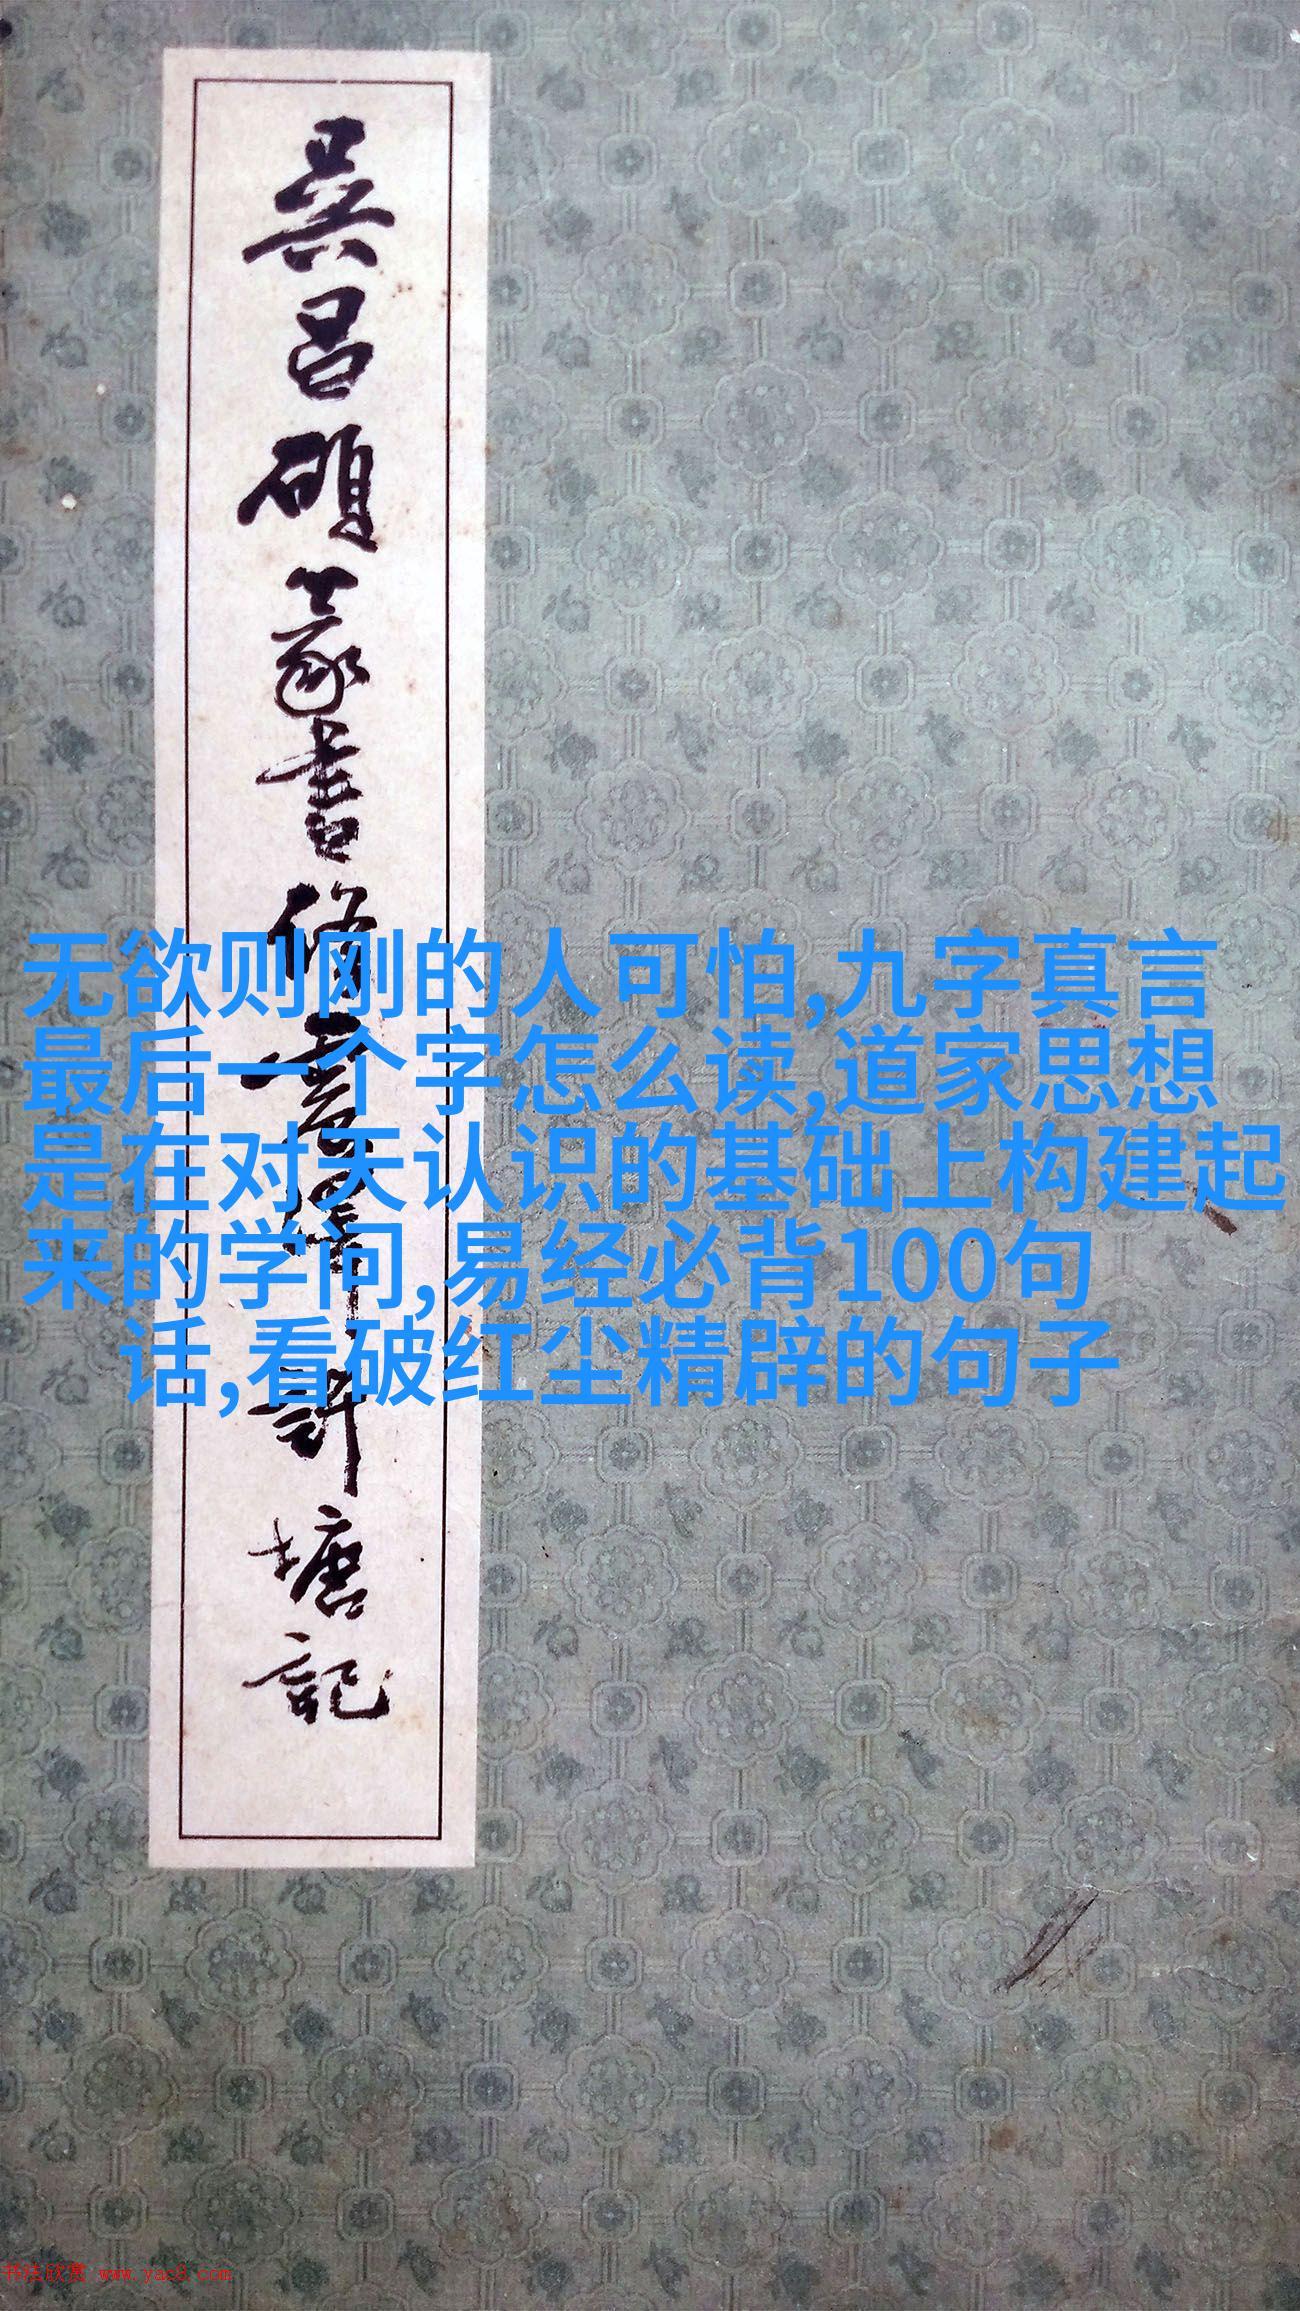 吳昌碩篆書脩震澤許塘記
无欲则刚的人可怕,九字真言
最后一个字怎么读,道家思想
是在对天认识的基础上构建起
来的学问,易经必背100句
话,看破红尘精辟的句子
书法欣赏 www.yac8.com